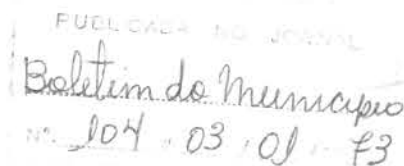 PUBLICADO NO JORNAL
Boletim do Municipio
Nº 104 03 01 73